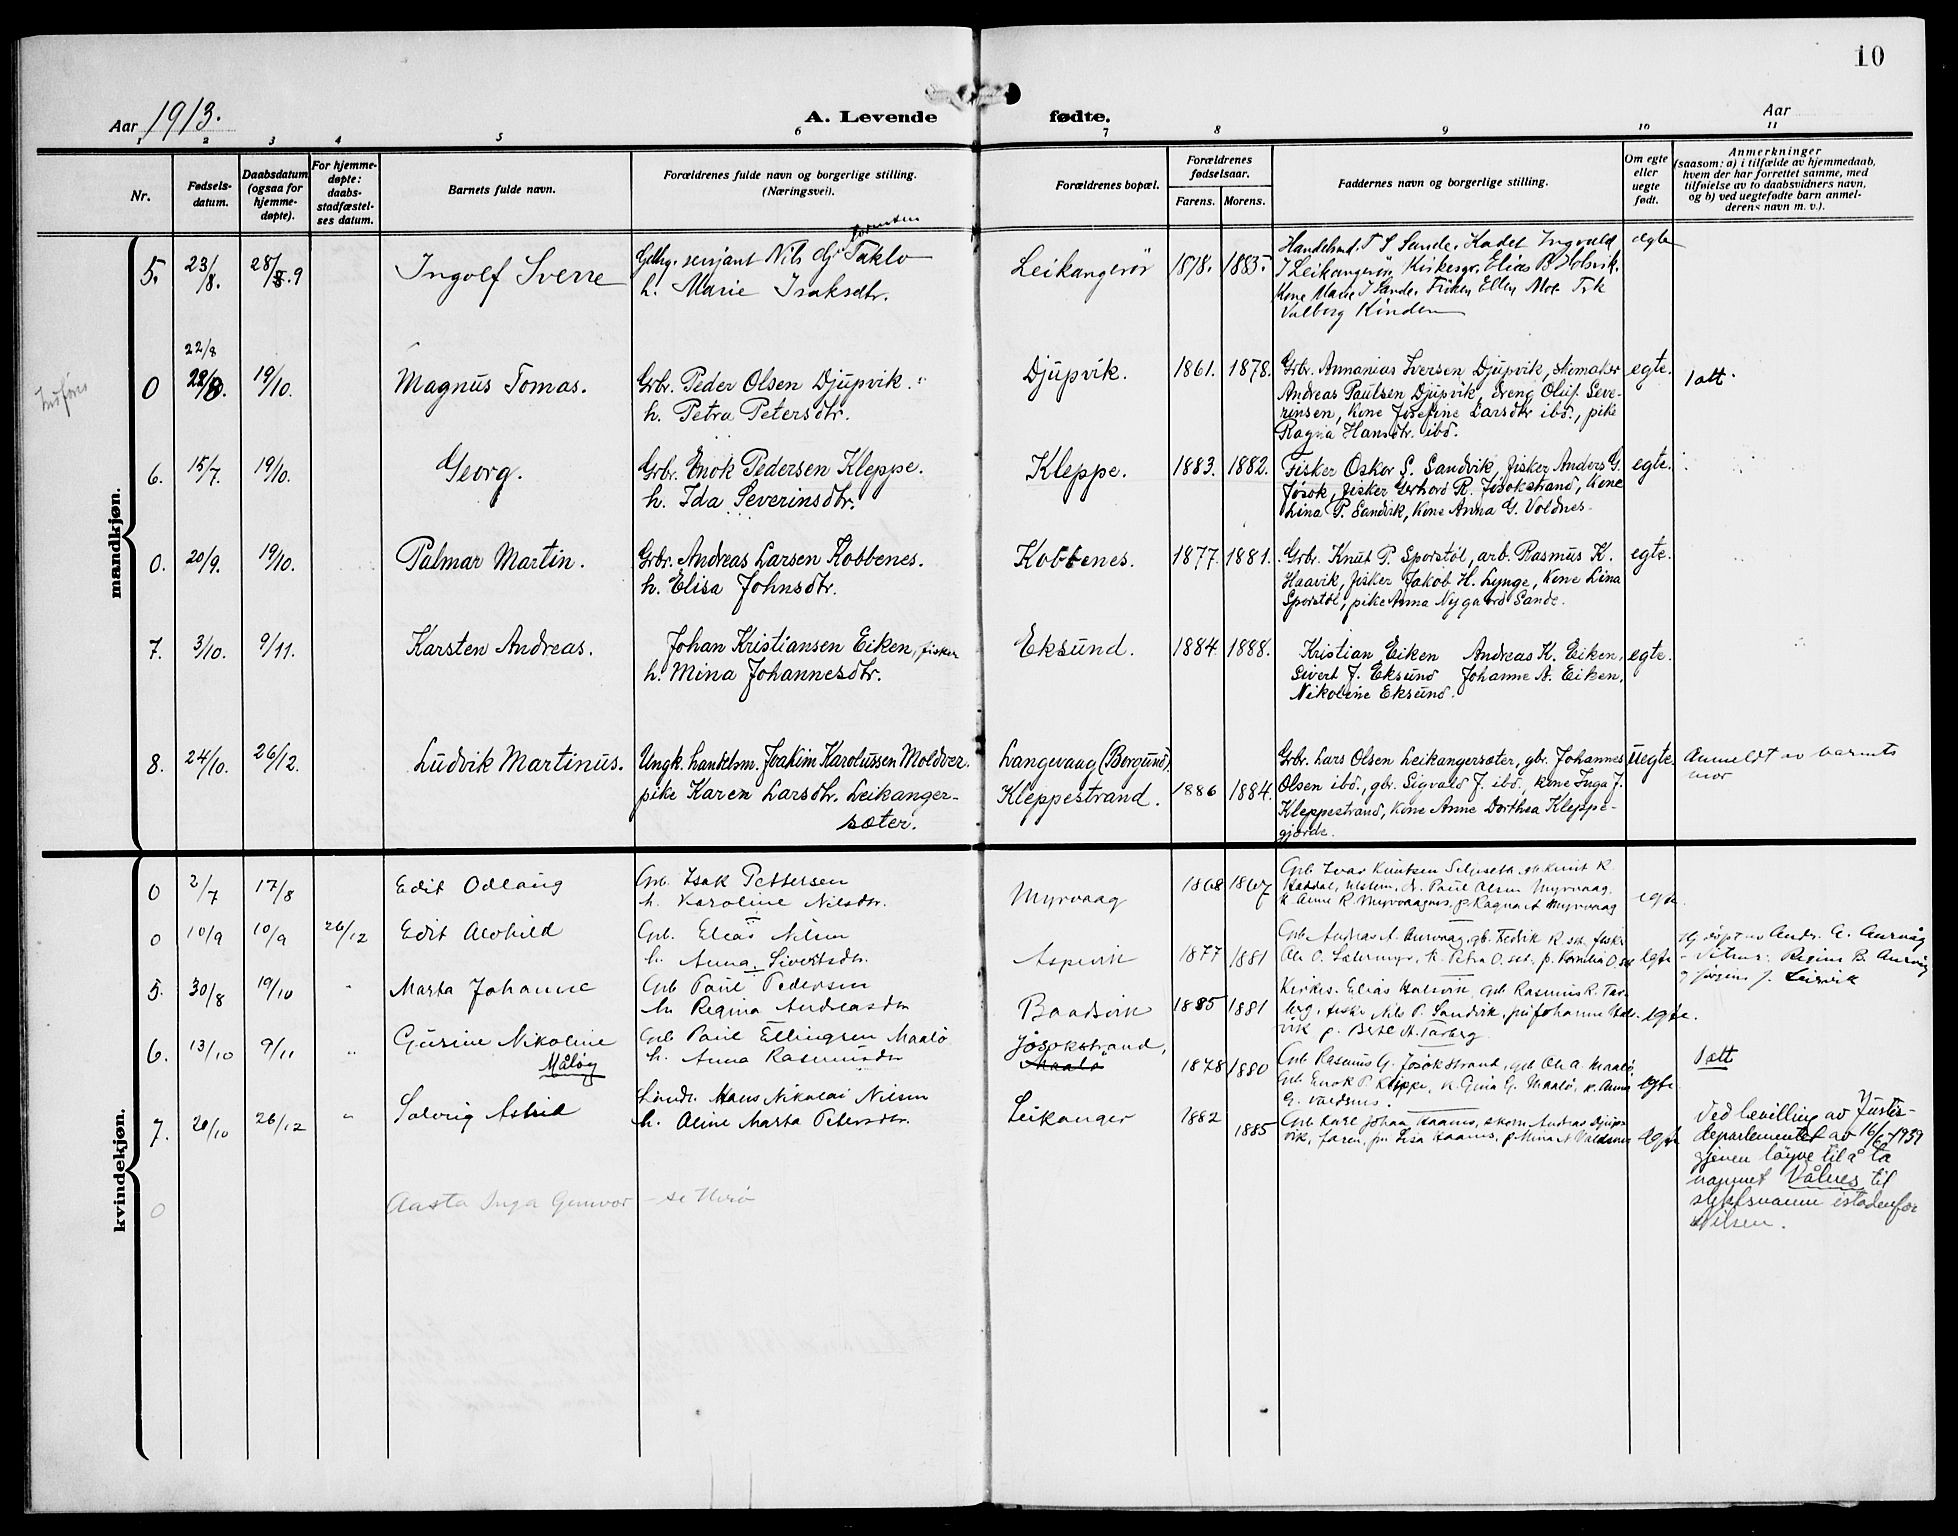 10
Aar 1913.
A. Levende fødte.
Aar
1 2 3 4 5 6 7 8 9 10 11
Nr.
Fødsels-
datum.
Daabsdatum
(ogsaa for
hjemme-
døpte).
For hjemme-
døpte:
daabs-
stadfæstel-
ses datum.
Barnets fulde navn.
Forældrenes fulde navn og borgerlige stilling.
(Næringsvei).
Forældrenes bopæl.
Forældrenes
fødselsaar.
Farens. Morens.
Faddernes navn og borgerlige stilling.
Om egte
eller
uegte
født.
Anmerkninger
(saasom: a) i tilfælde av hjemmedaab,
hvem der har forrettet samme, med
tilføielse av to daabsvidners navn,
og b) ved uegtefødte barn anmel-
derens navn m. v.).
mandkjøn.
5. 23/8. 28/9 Ingolf Sverre
sersjant Nils Taklo
h. Marie Isaksdtr.
Leikangerør 1878. 1883.
Handelsmd. T S Sande, Kadet Ingvald
J Leikangerør, Kirkesgr. Elias B Holsvik,
Kone Marie J Sande, Frøken Ellen Moe Frk
Valborg Kinden
egte
22/8
0 19/10. Magnus Tomas.
Grbr. Peder Olsen Djupvik.
h. Petra Petersdtr.
Djupvik. 1861. 1878.
Grbr. Annanias Iversen Djupvik, skomaker
Andreas Paulsen Djupvik, dreng Oluf Seve-
rinsen, kone Josefine Larsdtr ibd., pike
Ragna Hansdtr. ibd.
egte. 1 att.
6. 15/7. 19/10. Georg.
Grbr. Enok Pedersen Kleppe.
h. Ida Severinsdtr.
Kleppe. 1883. 1882.
Fisker Oskar S. Sandvik, fisker Anders G.
Jøsok, fisker Gerhard R. Jøsokstrand, kone
Lina P. Sandvik, kone Anna G. Voldnes.
egte.
0. 20/9. 19/10. Palmar Martin.
Grbr. Andreas Larsen Kobbenes.
h. Elisa Johnsdtr.
Kobbenes. 1877. 1881.
Grbr. Knut P. Sporstøl, arb. Rasmus K.
Haavik, fisker Jakob H. Lynge, kone Lina
Sporstøl, pike Anna Nygaard Sande.
egte.
7. 3/10. 9/11. Karsten Andreas.
Johan Kristiansen Eiken, fisker
h. Mina Johannesdtr.
Eksund. 1884 1888.
Kristian Eiken Andreas K. Eiken,
Sivert J. Eksund Johanne A. Eiken,
Nikoline Eksund.
egte.
8. 24/10. 26/12. Ludvik Martinus.
Ungk. handelsm. Joakim Karolussen Moldver.
pike Karen Larsdtr. Leikanger-
sæter.
Langevaag (Borgund).
Kleppestrand. 1886 1884.
Grbr. Lars Olsen Leikangersæter, gbr. Johannes
Olsen ibd., gbr. Sigvald J. ibd., kone Inga J.
Kleppestrand, kone Anne Dorthea Kleppe-
gjerde.
uegte
Anmeldt av barnets
mor
kvindekjøn.
0 2/7 17/8 Edit Odlaug
Grb. Isak Pettersen
h. Karoline Nilsdtr.
Myrvaag 1868 1867
Grb Ivar Knutsen Knut R.
Paul Olsen Myrvaag
k Anne R. Myrvaagnes, p. Ragna A Myrvaag
egte.
0 10/9 10/9 26/12 Edit Alvhild
Grb. Elias Nilsen
h. Anna Sivertsdtr.
Aspevik 1877 1881
Grb Andreas A. Aurvaag, gb. Fredrik R
Ole O. k. Petra O. p. Kornelia O.
egte
Hj. døpt av Andr. A. Aurvåg
Vitner: Regine B. Aurvåg
og J. Leirvik
5. 30/8 19/10 " Marta Johanne
Grb Paul Pedersen
h. Regina Andreasdtr
Baadsvik 1885 1881
Kirkes. Elias Holsvik, grb Rasmus R. Tar-
berg, fisker Nils P. Sandvik, Johanne
vik p. Berte A. Tarberg
egte.
6. 13/10 9/11 " Gurine Nikoline
Måløy
Grb Paul Ellingsen Maalø
h. Anna Rasmusdtr
Jøsokstrand,
Maalø 1878 1880
Grb Rasmus G. Jøsokstrand, grb Ole A. Maalø,
Grb Enok P. Kleppe, k. Gina G. Maalø, k. Anna
G. Voldsnes.
egte
1 att
7. 20/10 26/12 " Solveig Astrid
Hans Nikolai Nilsen
h. Aline Marta Petersdtr.
Leikanger 1882
1885
Grb Karl Johan Andreas Djup-
vik, faren, Lisa p.
egte
Ved bevilling av Justis-
departementet av 16/6-1939
gjeven løyve til å ta
namnet Vålnes til
slektsnamn istadenfor
Nilsen.
0 Aasta Inga Gunvor - se Herø